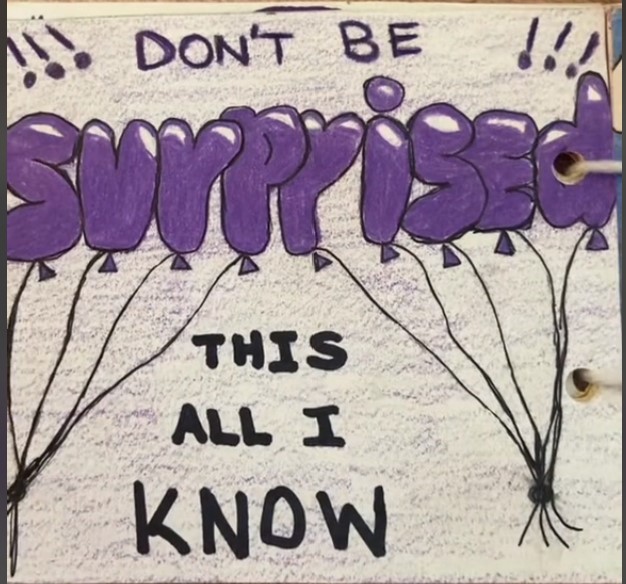 !!! DON'T BE !!!
SURPriSEd
THIS
ALL I
KNOW